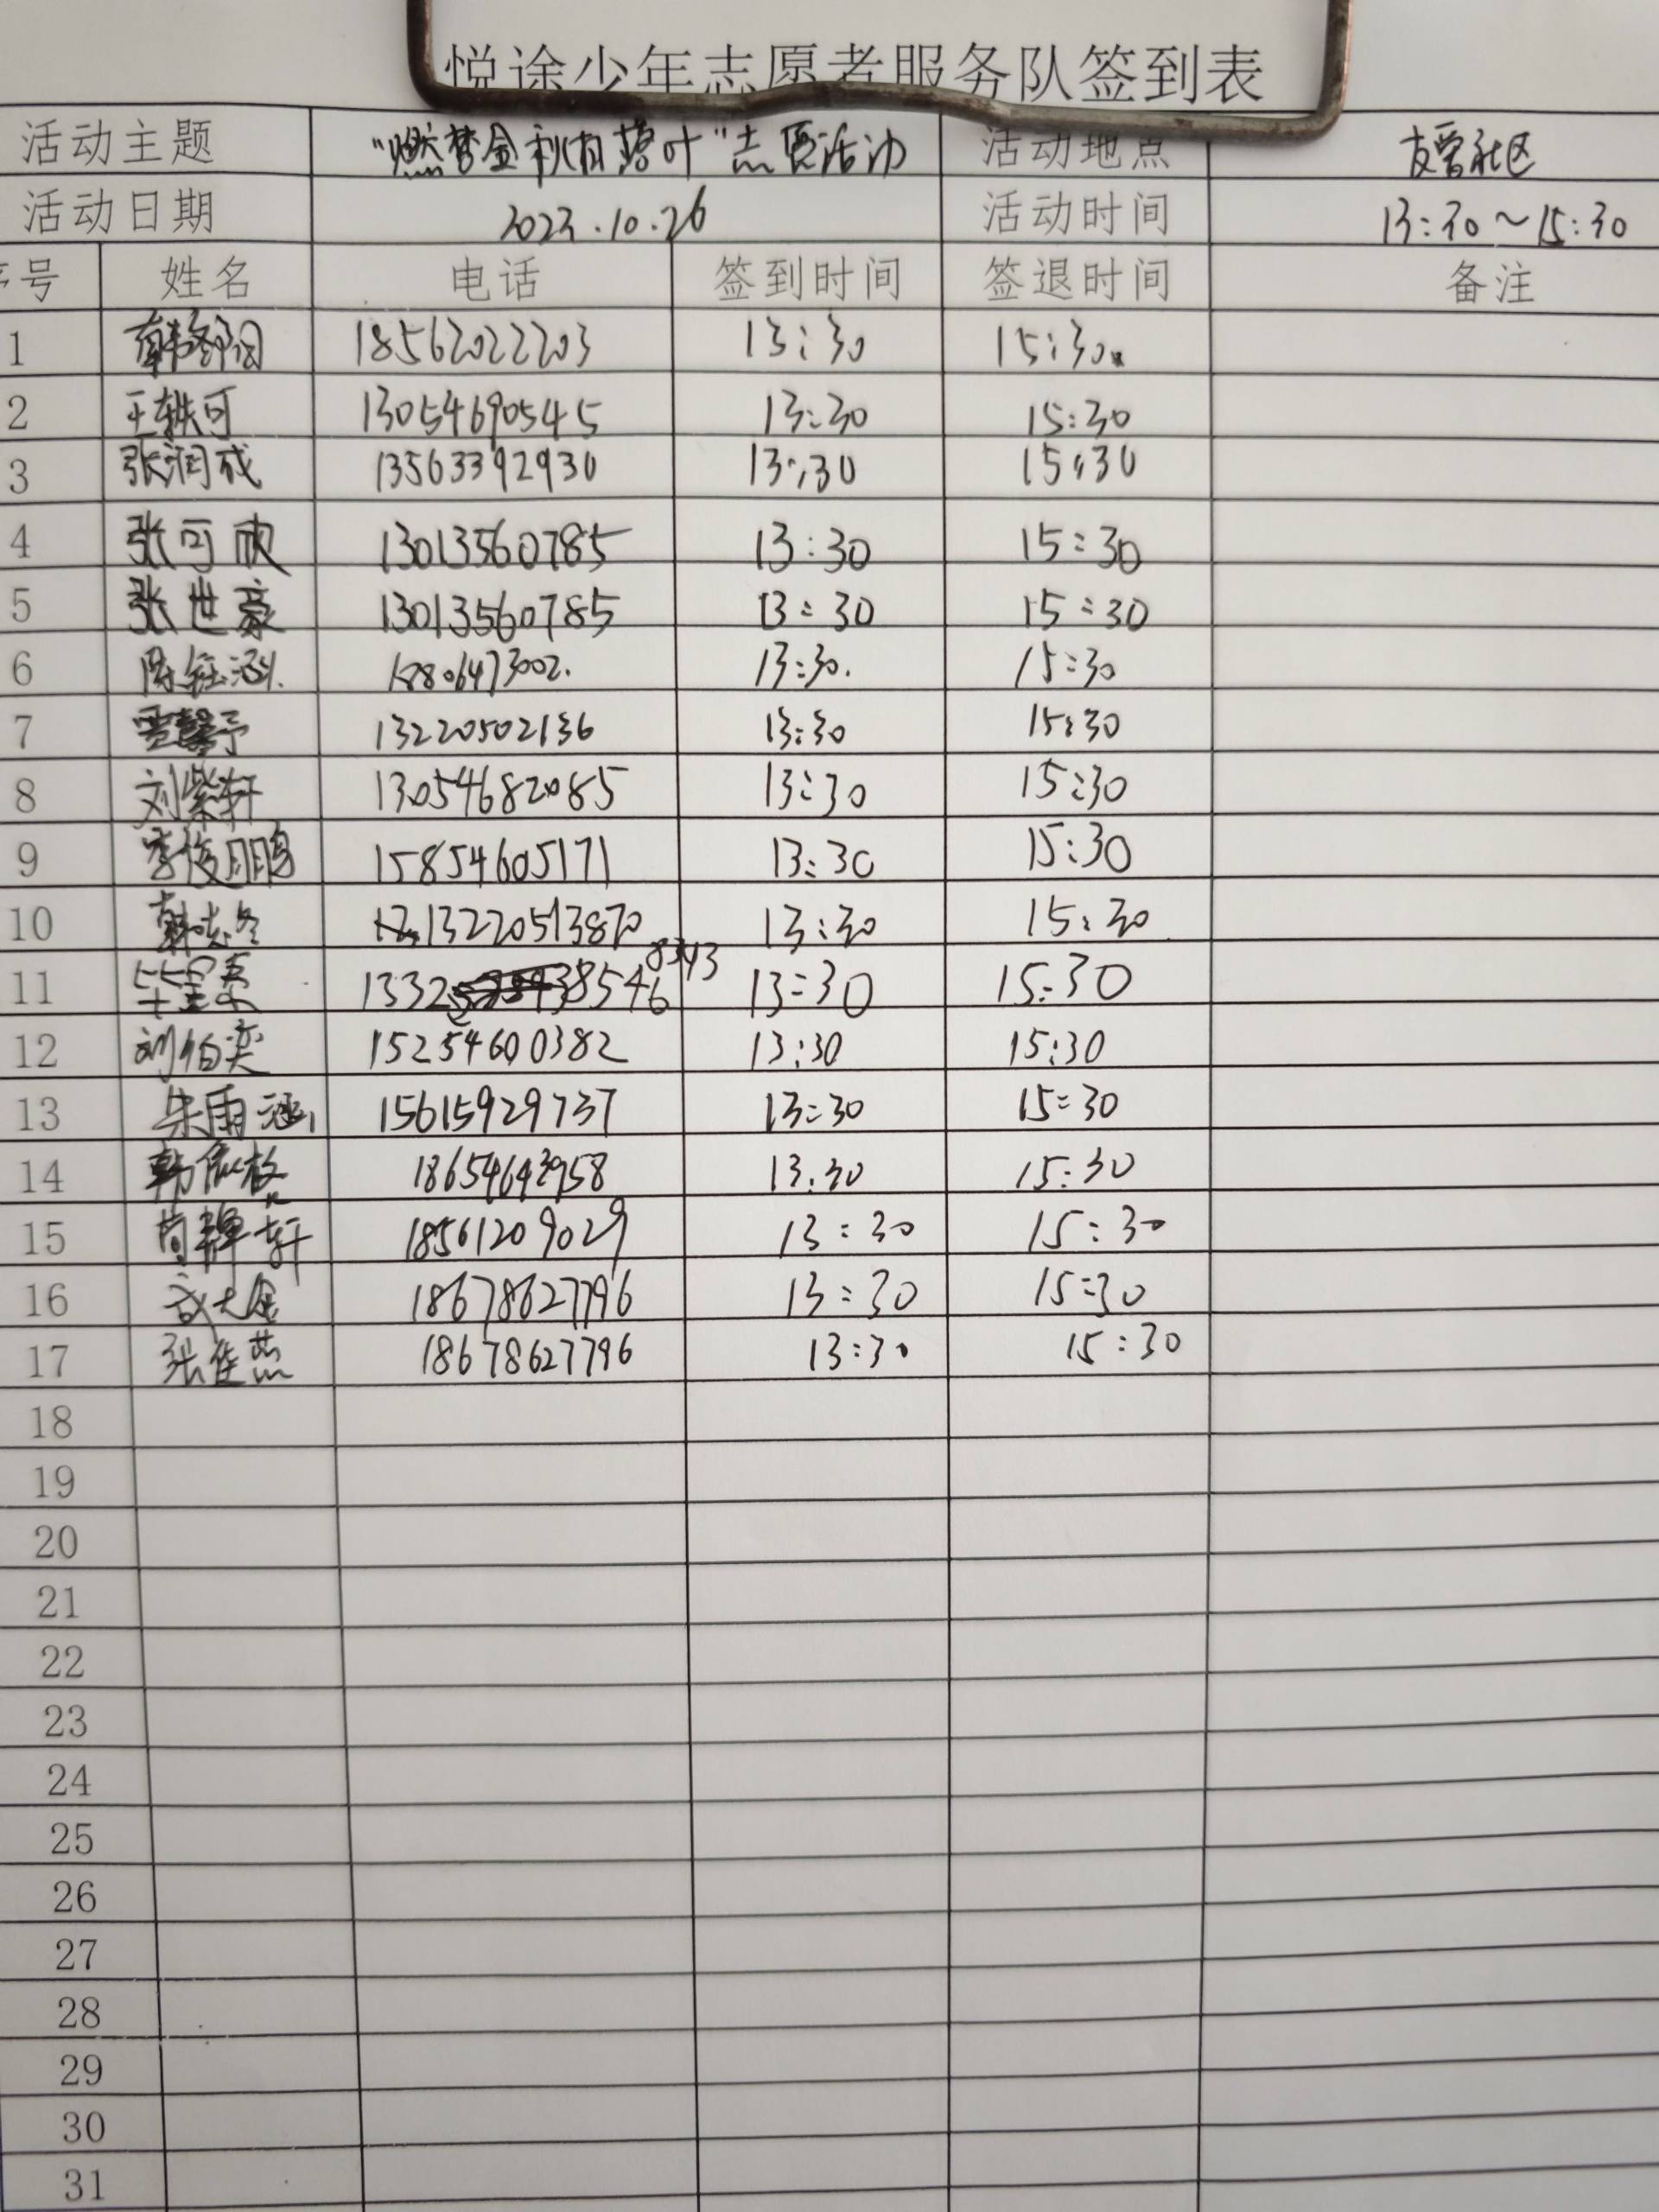 悦途少年志愿者服务队签到表
活动主题 "燃梦金秋 落叶"志愿活动 活动地点 社区
活动日期 2023.10.26 活动时间 13:30~15:30
序号 姓名 电话 签到时间 签退时间 备注
1 18562022203 13:30 15:30
2 王轶可 13054690545 13:30 15:30
3 张润成 13563392930 13:30 15:30
4 张可欣 13013560785 13:30 15:30
5 张世豪 13013560785 13:30 15:30
6 13:30. 15:30
7 贾馨予 13220502136 13:30 15:30
8 刘紫轩 13054682085 13:30 15:30
9 李俊鹏 15854605171 13:30 15:30
10 13220513870 13:30 15:30
11 13:30 15:30
12 刘伯奕 15254600382 13:30 15:30
13 朱雨涵 15615929737 13:30 15:30
14 韩依格 13:30 15:30
15 轩 18561209029 13:30 15:30
16 18678627796 13:30 15:30
17 张佳燕 18678627796 13:30 15:30
18
19
20
21
22
23
24
25
26
27
28
29
30
31